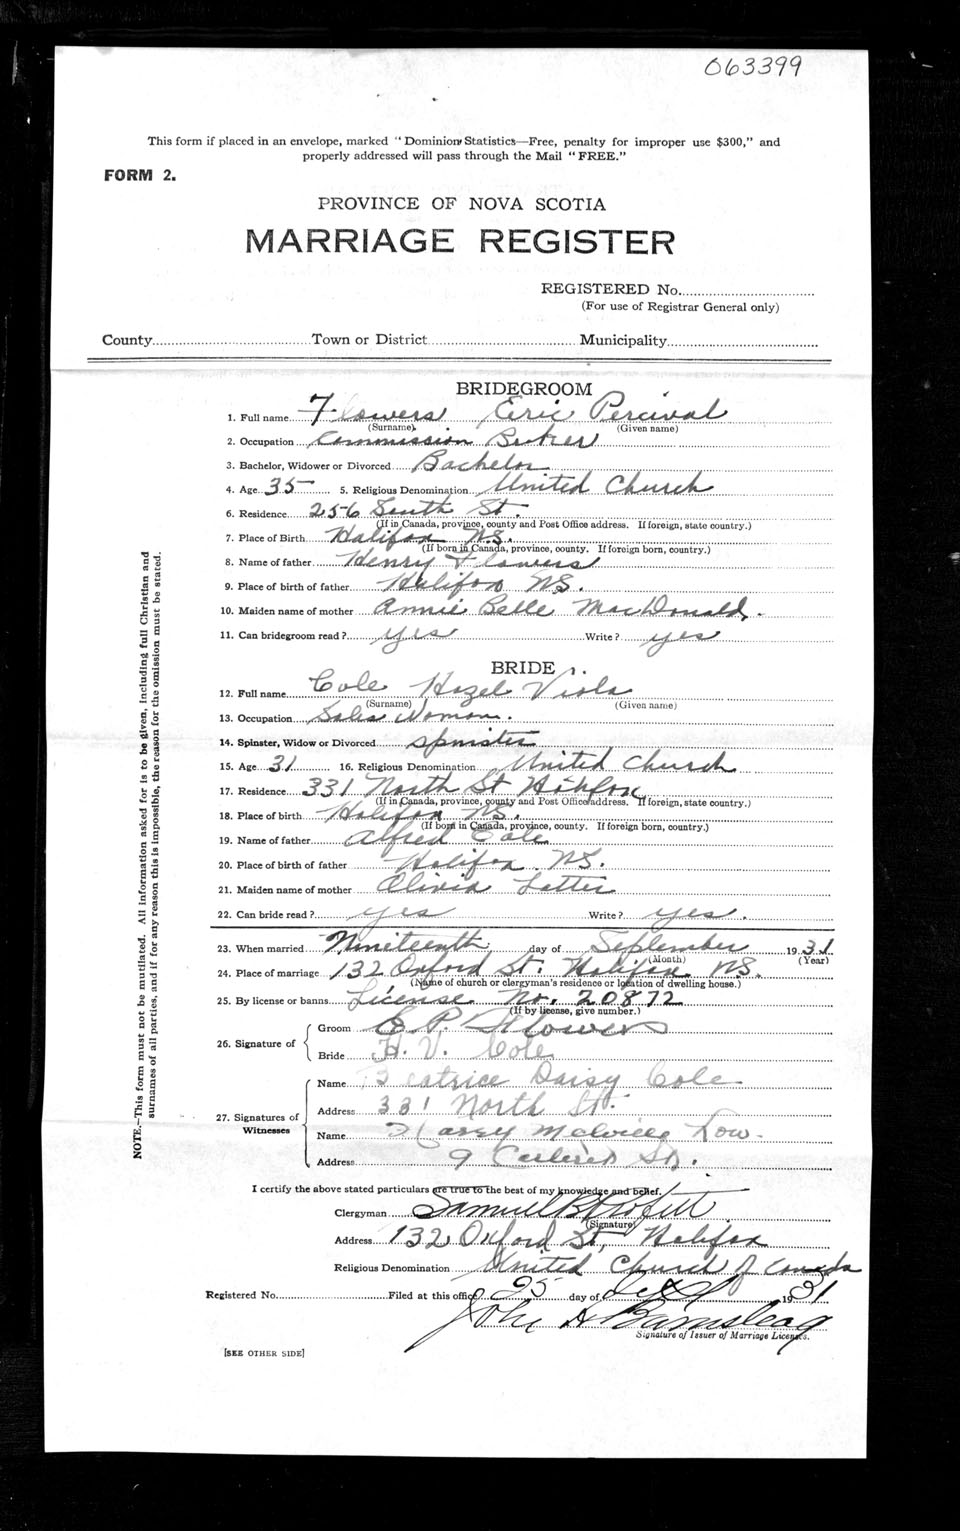 063399
This form if placed in an envelope, marked "Dominion Statistics—Free, penalty for improper use $300," and
properly addressed will pass through the Mail "FREE."
FORM 2.
PROVINCE OF NOVA SCOTIA
MARRIAGE REGISTER
REGISTERED No.
(For use of Registrar General only)
County Town or District Municipality
BRIDEGROOM
1. Full name Flowers Eric Percival
(Surname) (Given name)
2. Occupation Commission Broker
3. Bachelor, Widower or Divorced Bachelor
4. Age 35 5. Religious Denomination United Church
6. Residence 256 South St.
(If in Canada, province, county and Post Office address. If foreign, state country.)
7. Place of Birth Halifax N.S.
(If born in Canada, province, county. If foreign born, country.)
8. Name of father Henry Flowers
9. Place of birth of father Halifax NS.
10. Maiden name of mother Annie Belle MacDonald.
11. Can bridegroom read? yes Write? yes
BRIDE
12. Full name Cole Hazel Viola
(Surname) (Given name)
13. Occupation Sales Woman.
14. Spinster, Widow or Divorced spinster
15. Age 31 16. Religious Denomination United Church
17. Residence 331 North St Halifax
(If in Canada, province, county and Post Office address. If foreign, state country.)
18. Place of birth Halifax N.S.
(If born in Canada, province, county. If foreign born, country.)
19. Name of father Alfred Cole
20. Place of birth of father Halifax NS.
21. Maiden name of mother Olivia Latter
22. Can bride read? yes Write? yes.
23. When married Nineteenth day of September 1931
(Month) (Year)
24. Place of marriage 132 Oxford St. Halifax N.S.
(Name of church or clergyman's residence or location of dwelling house.)
25. By license or banns License No. 20872
(If by license, give number.)
26. Signature of
Groom E. P. Flowers
Bride H. V. Cole
27. Signatures of Witnesses
Name Beatrice Daisy Cole
Address 331 North St.
Name Harry Melville Low.
Address 9 St.
I certify the above stated particulars are true to the best of my knowledge and belief.
Clergyman Samuel B
(Signature)
Address 132 Oxford St, Halifax
Religious Denomination United Church of Canada
Registered No. Filed at this office 25 day of Sept 1931
John A Barnstead
Signature of Issuer of Marriage Licenses.
[SEE OTHER SIDE]
NOTE.—This form must not be mutilated. All information asked for is to be given, including full Christian and
surnames of all parties, and if for any reason this is impossible, the reason for the omission must be stated.